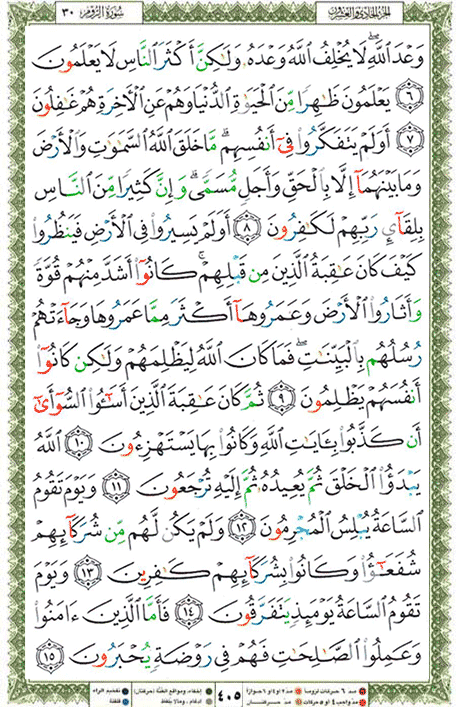 سُورَةُ الرُّومِ ٣٠
الجزء الحادي والعشرون
وَعْدَ ٱللَّهِ لَا يُخْلِفُ ٱللَّهُ وَعْدَهُۥ وَلَـٰكِنَّ أَكْثَرَ ٱلنَّاسِ لَا يَعْلَمُونَ
٦ يَعْلَمُونَ ظَـٰهِرًا مِّنَ ٱلْحَيَوٰةِ ٱلدُّنْيَا وَهُمْ عَنِ ٱلْـَٔاخِرَةِ هُمْ غَـٰفِلُونَ
٧ أَوَلَمْ يَتَفَكَّرُوا۟ فِىٓ أَنفُسِهِم ۗ مَّا خَلَقَ ٱللَّهُ ٱلسَّمَـٰوَٰتِ وَٱلْأَرْضَ
وَمَا بَيْنَهُمَآ إِلَّا بِٱلْحَقِّ وَأَجَلٍ مُّسَمًّى ۗ وَإِنَّ كَثِيرًا مِّنَ ٱلنَّاسِ
بِلِقَآئِ رَبِّهِمْ لَكَـٰفِرُونَ ٨ أَوَلَمْ يَسِيرُوا۟ فِى ٱلْأَرْضِ فَيَنظُرُوا۟
كَيْفَ كَانَ عَـٰقِبَةُ ٱلَّذِينَ مِن قَبْلِهِمْ ۚ كَانُوٓا۟ أَشَدَّ مِنْهُمْ قُوَّةً
وَأَثَارُوا۟ ٱلْأَرْضَ وَعَمَرُوهَآ أَكْثَرَ مِمَّا عَمَرُوهَا وَجَآءَتْهُمْ
رُسُلُهُم بِٱلْبَيِّنَـٰتِ ۖ فَمَا كَانَ ٱللَّهُ لِيَظْلِمَهُمْ وَلَـٰكِن كَانُوٓا۟
أَنفُسَهُمْ يَظْلِمُونَ ٩ ثُمَّ كَانَ عَـٰقِبَةَ ٱلَّذِينَ أَسَـٰٓـُٔوا۟ ٱلسُّوٓأَىٰٓ
أَن كَذَّبُوا۟ بِـَٔايَـٰتِ ٱللَّهِ وَكَانُوا۟ بِهَا يَسْتَهْزِءُونَ ١٠ ٱللَّهُ
يَبْدَؤُا۟ ٱلْخَلْقَ ثُمَّ يُعِيدُهُۥ ثُمَّ إِلَيْهِ تُرْجَعُونَ ١١ وَيَوْمَ تَقُومُ
ٱلسَّاعَةُ يُبْلِسُ ٱلْمُجْرِمُونَ ١٢ وَلَمْ يَكُن لَّهُم مِّن شُرَكَآئِهِمْ
شُفَعَـٰٓؤُا۟ وَكَانُوا۟ بِشُرَكَآئِهِمْ كَـٰفِرِينَ ١٣ وَيَوْمَ
تَقُومُ ٱلسَّاعَةُ يَوْمَئِذٍ يَتَفَرَّقُونَ ١٤ فَأَمَّا ٱلَّذِينَ ءَامَنُوا۟
وَعَمِلُوا۟ ٱلصَّـٰلِحَـٰتِ فَهُمْ فِى رَوْضَةٍ يُحْبَرُونَ ١٥
٤٠٥